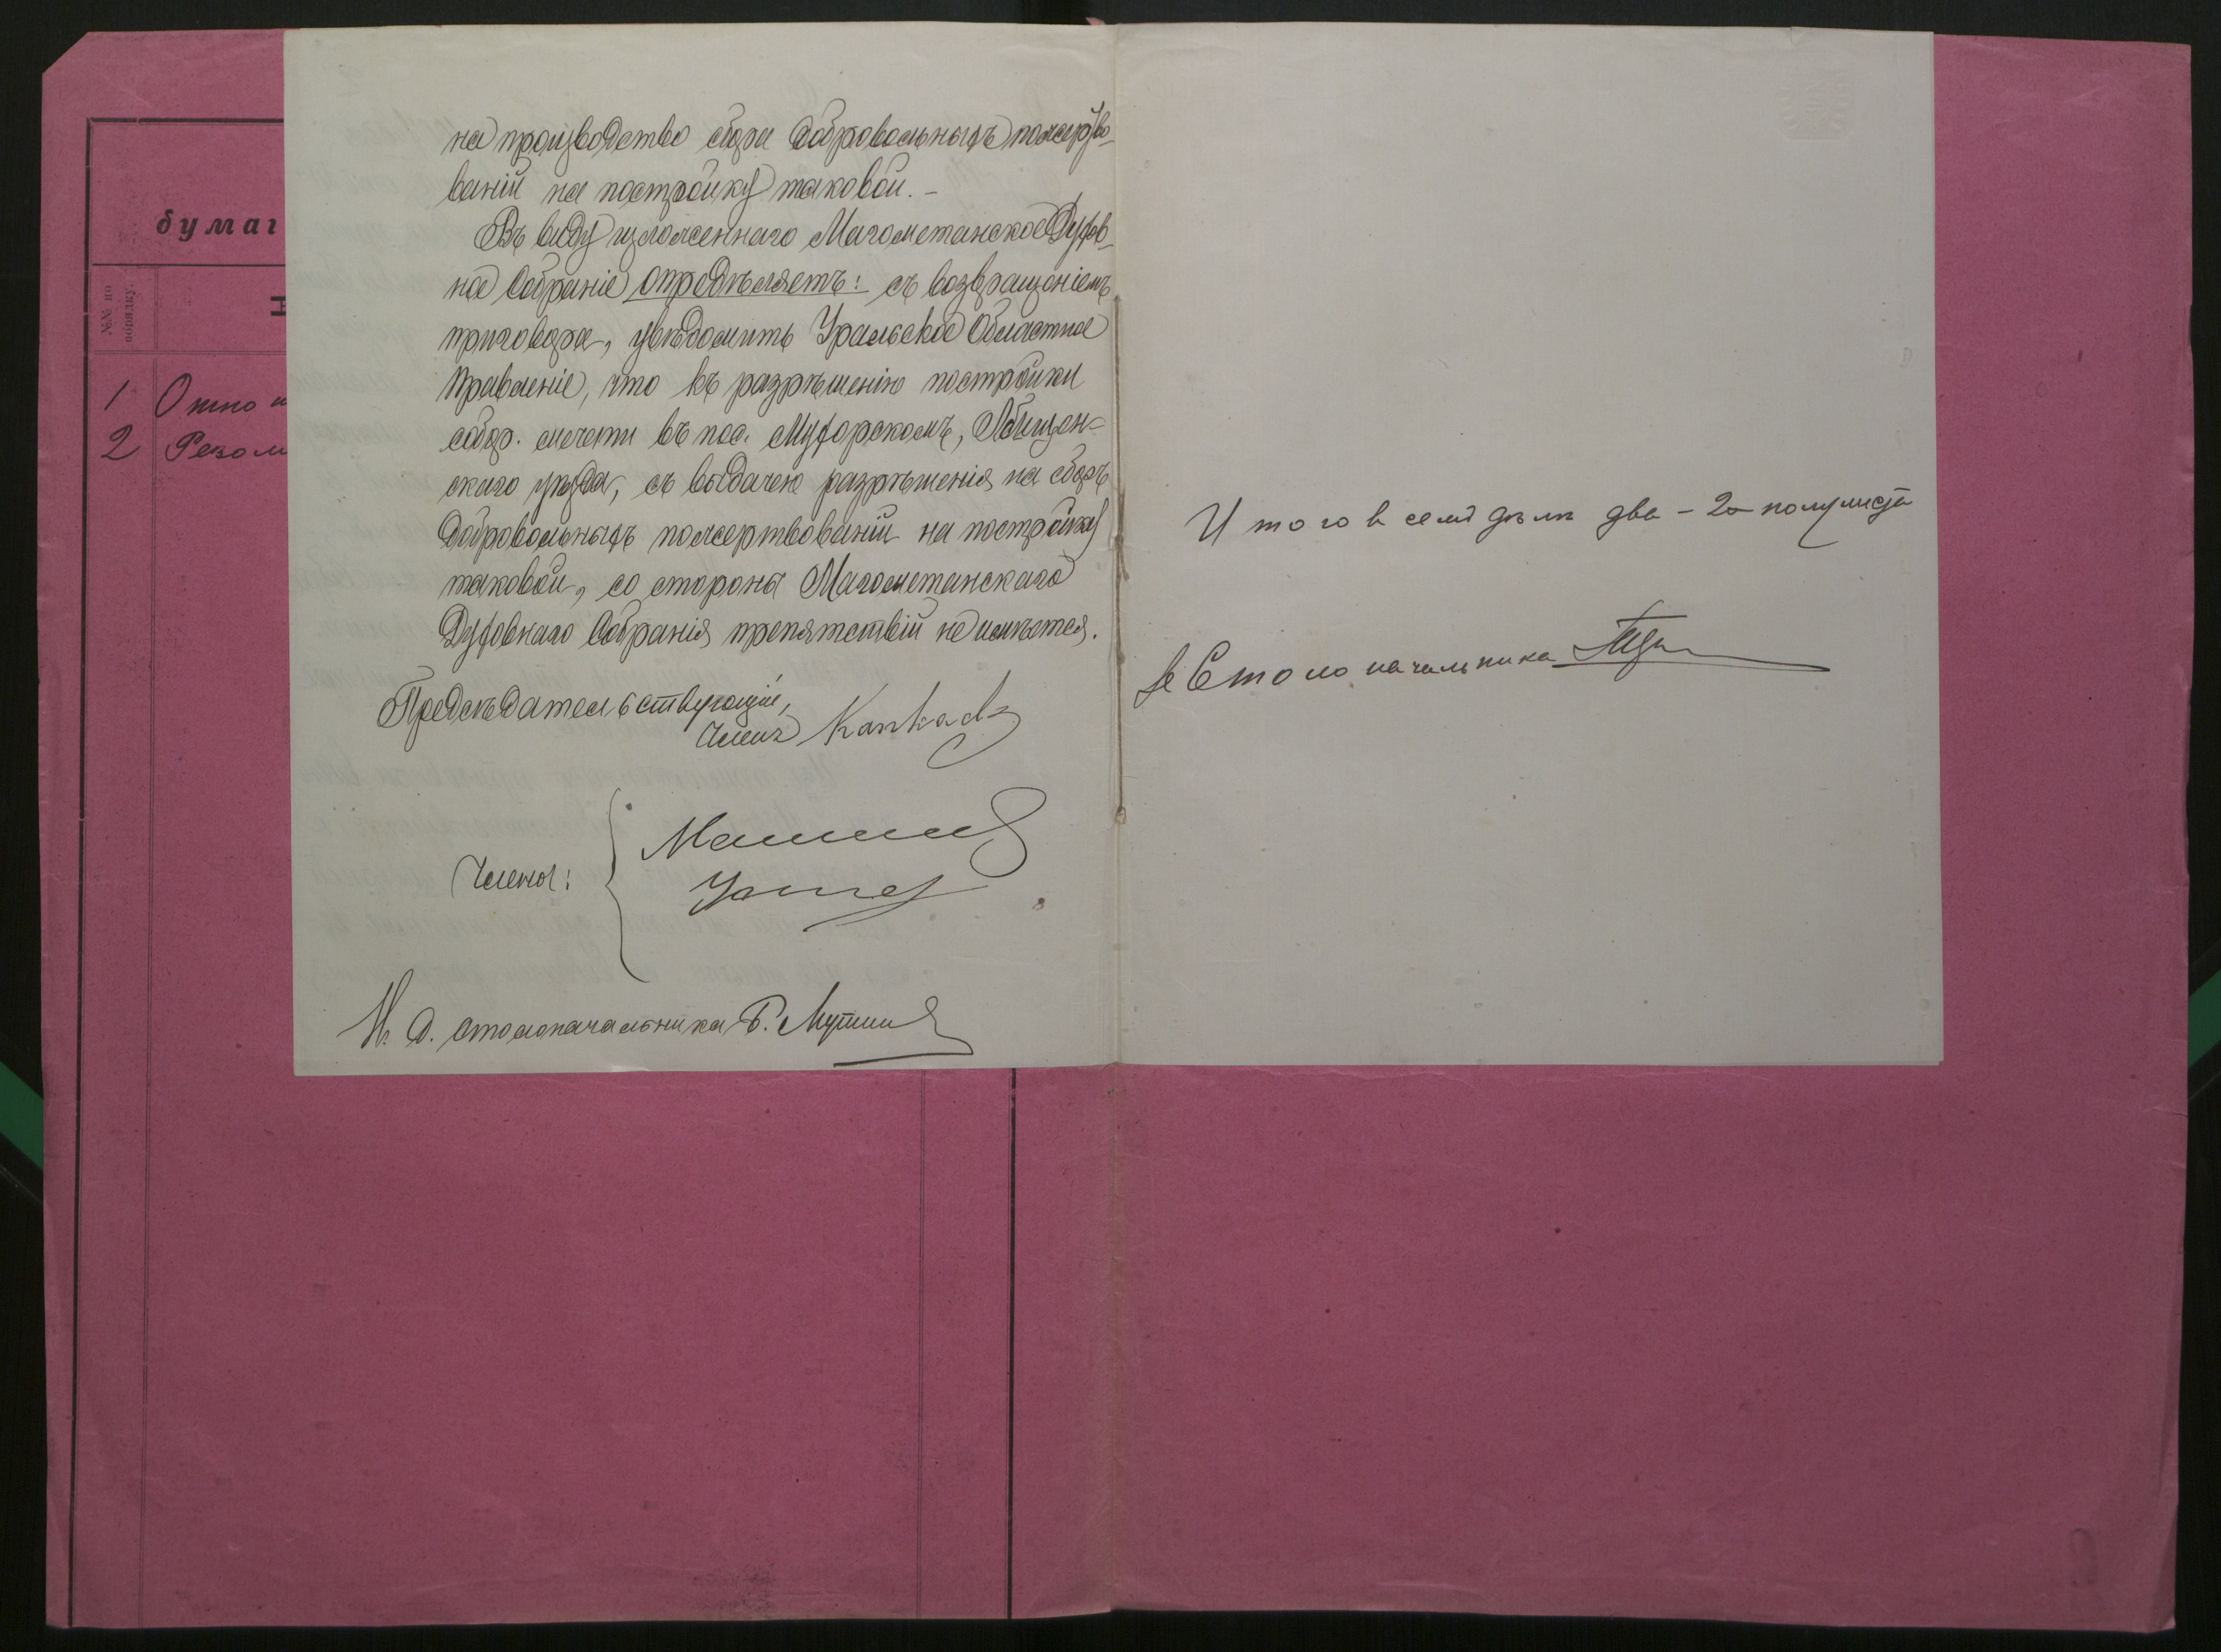 бумаг
№№ по порядку.
Н
1 Отно
2 Резол
на производство сбора добровольныхъ пожертво-
ваній на постройку таковой. –
Въ виду изложеннаго Магометанское Духов-
ное Собраніе опредѣляетъ: съ возвращеніемъ
приговора, увѣдомить Уральское Областное
Правленіе, что къ разрѣшенію постройки
собор. мечети въ пос. Мухорскомъ, Лбищен-
скаго уѣзда, съ выдачею разрѣшенія на сборъ
добровольныхъ пожертвованій на постройку
таковой, со стороны Магометанскаго
Духовнаго Собранія препятствій не имѣется.
Предсѣдательствующій,
Членъ Капкаевъ
Члены:
И. д. столоначальника
Итого в семъ дѣлѣ два – 2 – полулиста
Столоначальника